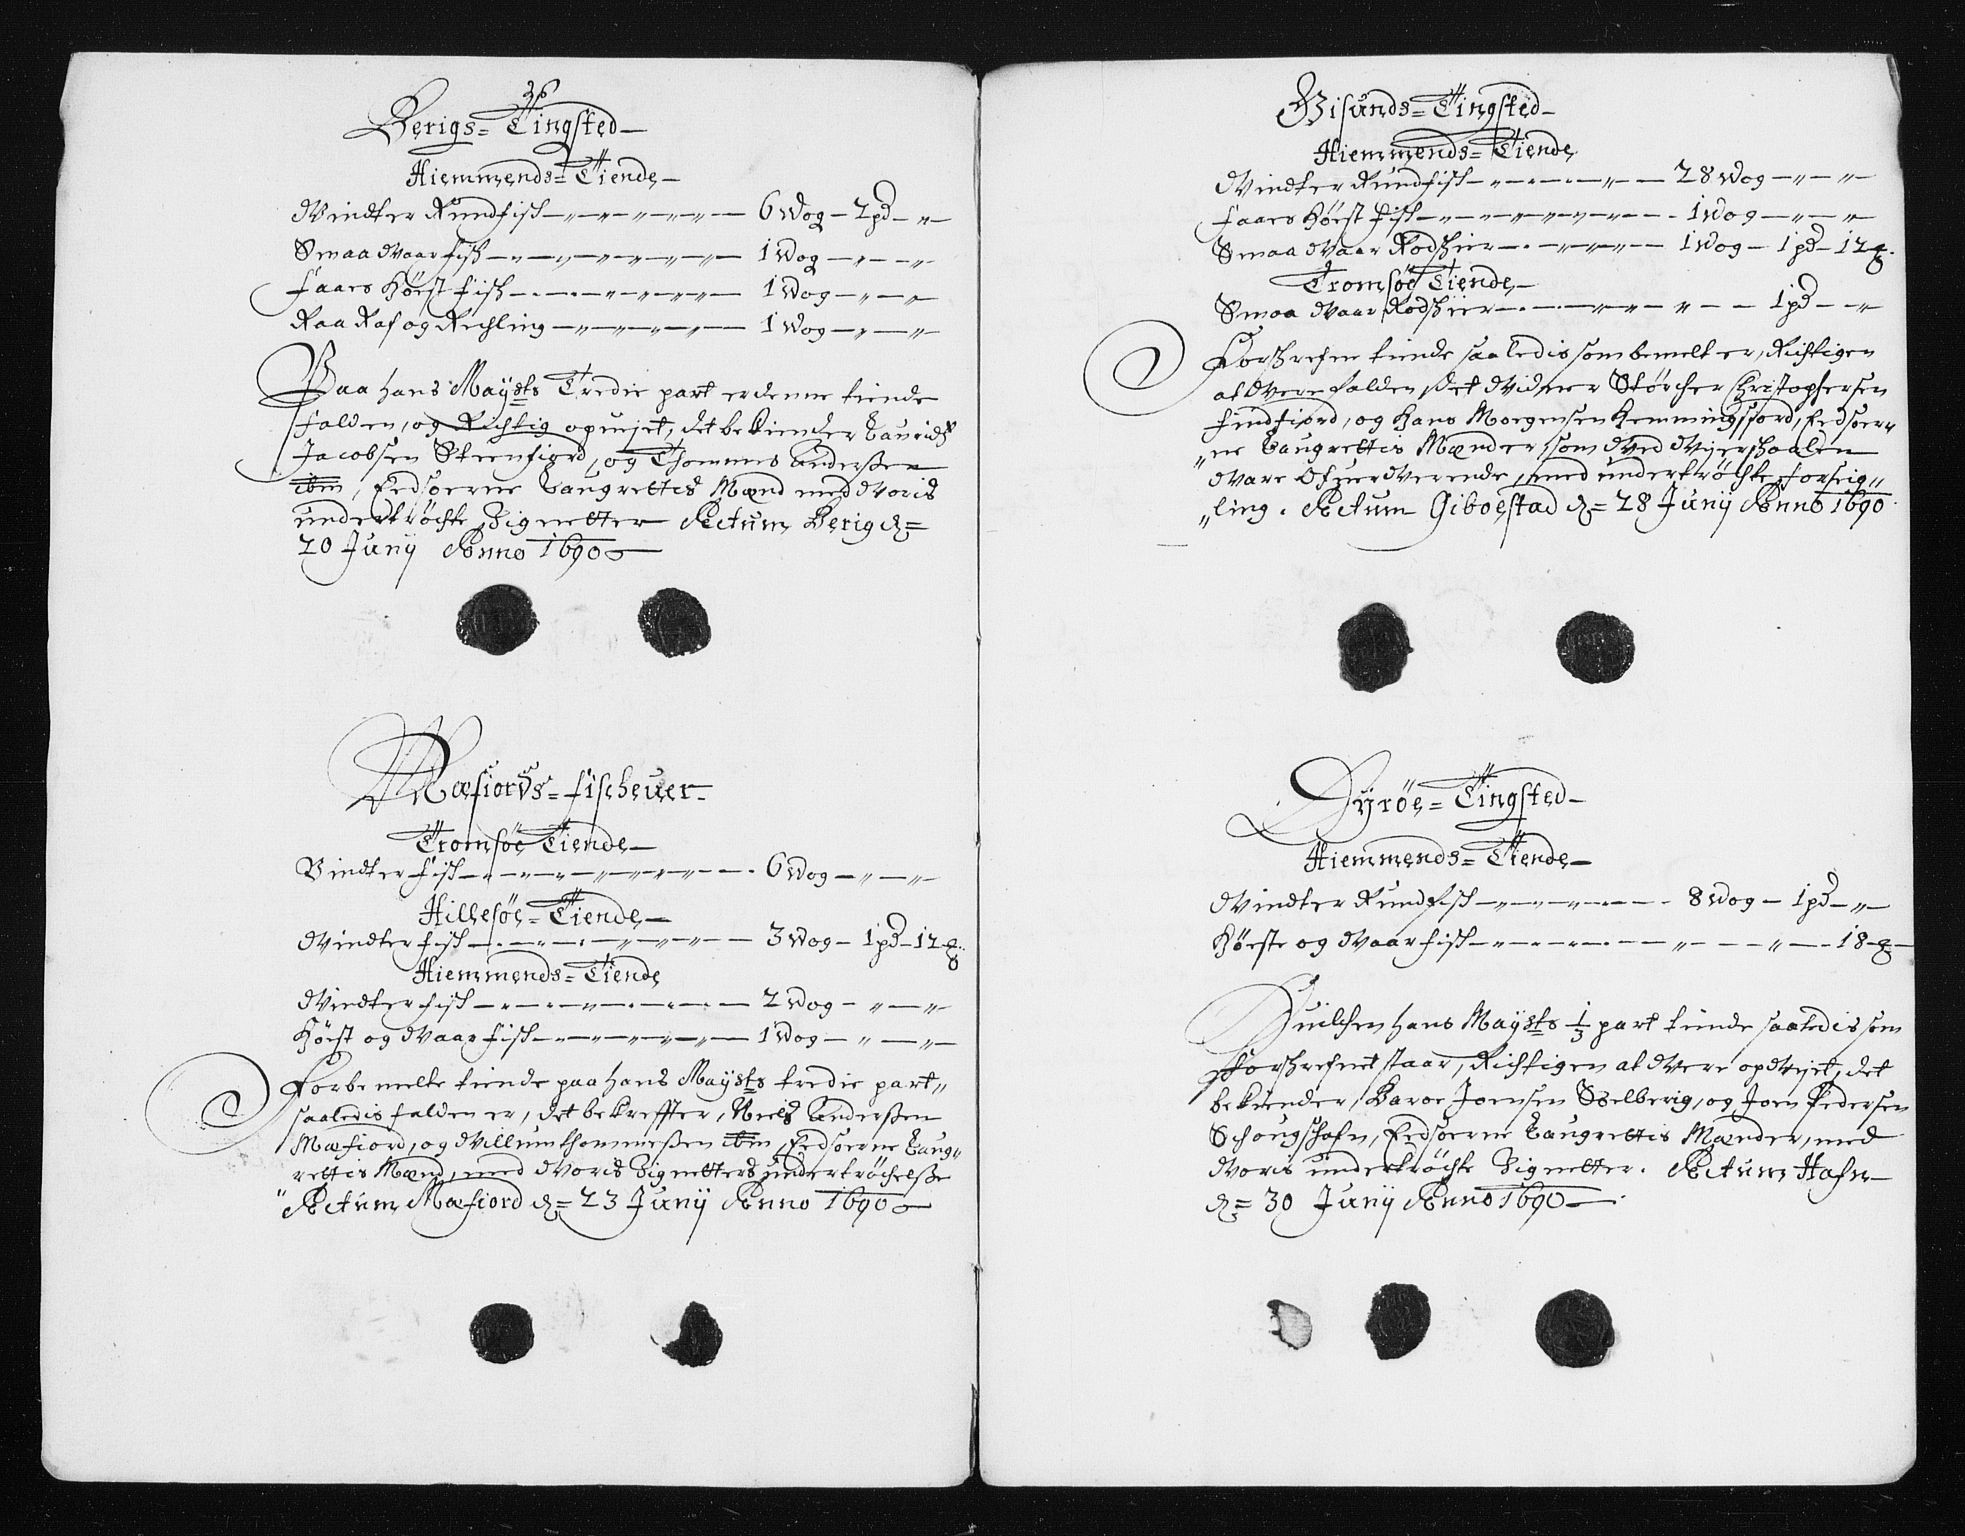 Berigs= Tingsted
Hiemmends= Tiende
Vindter Rundfisk 6 Wog 2 pd
Smaa Vaarfisk 1 Wog
Faars Høst fisk 1 Wog
Raa Raf og Rechling 1 Wog
Paa hans Mayts Tredie part er denne tiende
falden, og Richtig opvejet, det bekiender Lauridtz
Jacobsen Steenfiord, og Thommes Anderssen
ibm, Eedsorne Laugrettis Mænd med Voris
undertrøchte Zignetter Actum Berig d=
20 Junij Anno 1690
Mæfiords= fischeuer
Tromsøe Tiende
Vindter fisk 6 Wog
Hillesøe= Tiende
Vindter fisk 3 Wog 1 pd 12
Hiemmends= Tiende
Vindter fisk 2 Wog
Høst og Vaar fisk 1 Wog
Forbemelte tiende paa hans Maysts tredie part
saaledis falden er, det bekreffter, Niels Anderssen
Mæfiord, og Villum thommessen ibm Eedsorne Laug„
rettis Mænd, med Voris Zignetters undertrøchelsse
Actum Mæfiord d= 23 Junij Anno 1690
Gisunds= Tingsted
Hiemmends= Tiende
Vindter Rundfisk 28 Wog
Faars Høest fisk 1 Wog
Smaa Vaar Rodskier 1 Wog 1 pd 12
Tromsøe Tiende
Smaa Vaar Rodskier 1 pd
Forskrefne tiende saaledis som bemelt er, Richtigen
at Were falden det Vidner Størcher Christophersen
findfiord, og Hans Morgensen Hemmingsfiord, Eedsoer„
„ne Laugrettis Mænder, som Ved
Vare Ofuerverende, med undertrøchte forseig„
„ling. Actum Giboestad d= 28 Junij Anno 1690
Dyrøe= Tingsted
Hiemmends= Tiende
Vindter Rundfisk 8 Wog 1 pd
Høste og Vaarfisk 18
Huilchen hans Maysts 1/3 part tiende saaledis som
forskrefuet staar, Richtigen at Vere opvejet, det
bekiender, Baroe Joensen Solberig, og Joen Pedersen
Schougshafn, Eedsorne Laugrettis Mænder, med
Voris undertrøchte Zignetter. Actum Hafn
d= 30 Junij Anno 1690